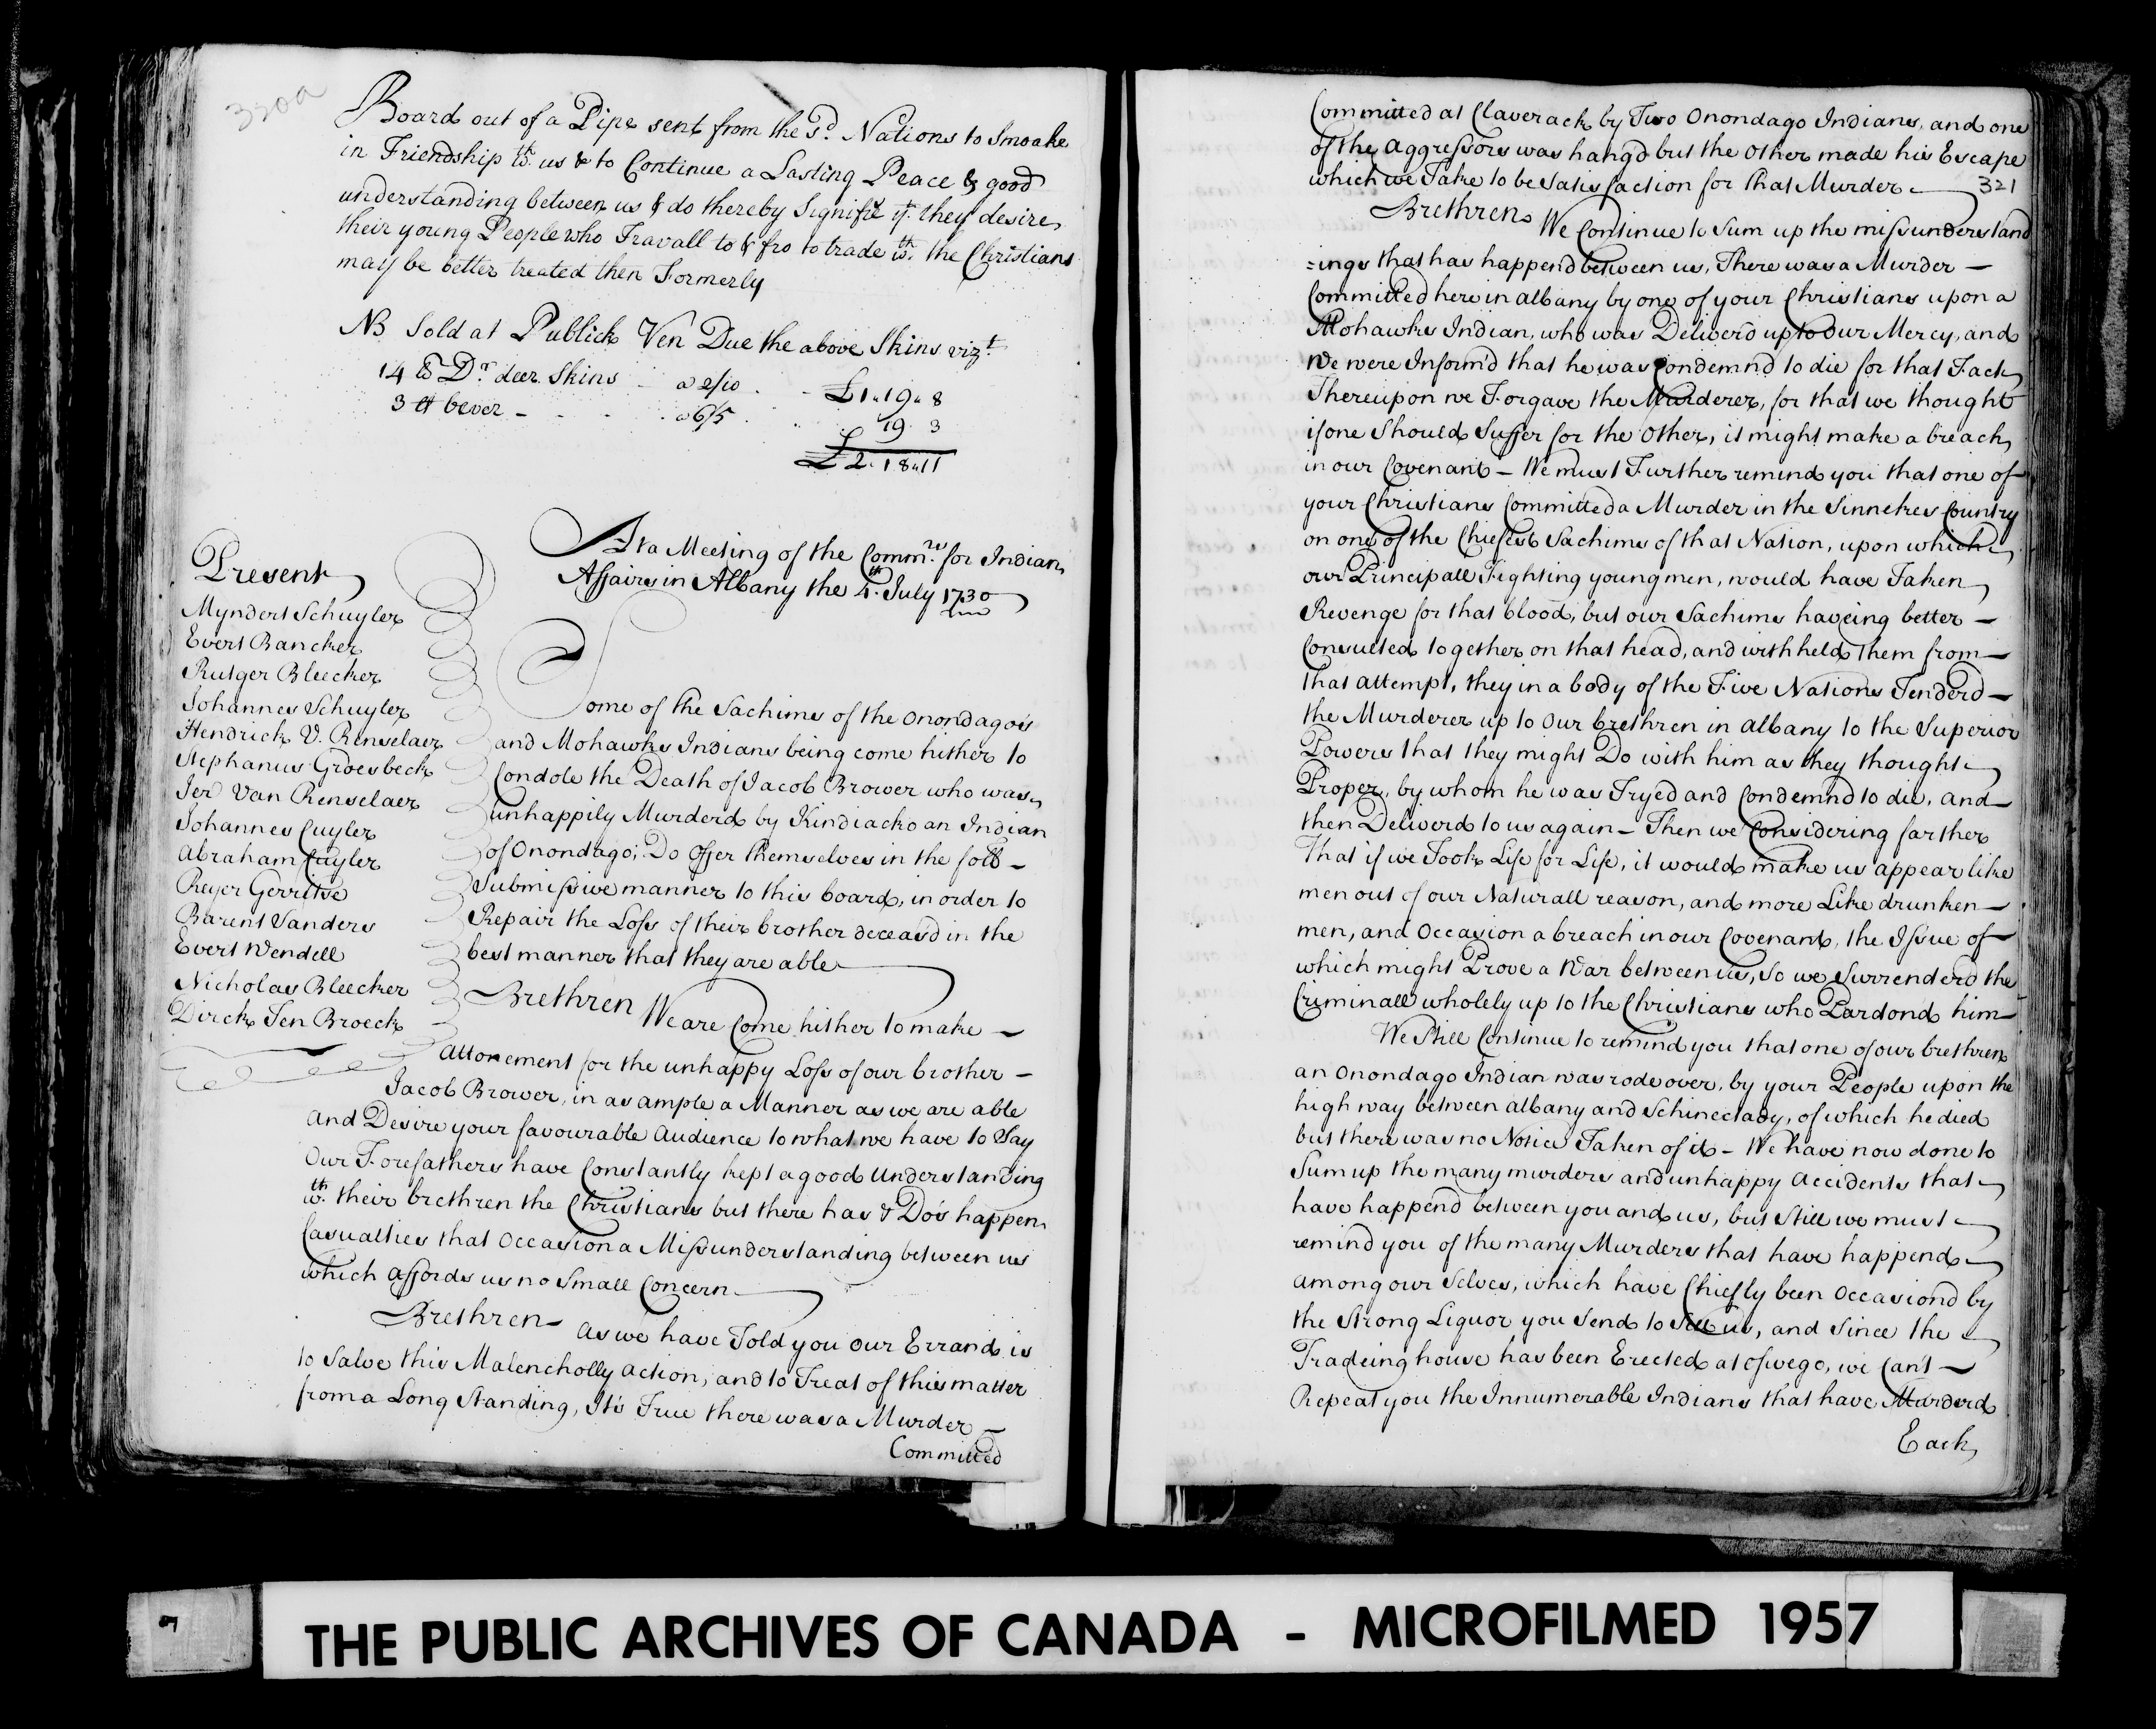 320a
Board out of a Pipe sent from the sd. Nations to Smoake
in Friendship wth. us & to Continue a Lasting Peace & good
understanding between us & do thereby Signifie yt. they desire
their young People who Travall to & fro to trade wth. the Christians
may be better treated then Formerly
NB Sold at Publick Ven Due the above Skins vizt.
14 lb Dr. deer Skins - a 2/10 - £1"19"8
3 lb bever - - - a 6/5 19 3
£2"18"11
At a Meeting of the Commrs. for Indian
Affairs in Albany the 4th. July 1730
Present
Myndert Schuyler
Evert Bancker
Rutger Bleecker
Johannes Schuyler
Hendrick V. Renselaer
Stephanus Groesbeck
Jer Van Renselaer
Johannes Cuyler
Abraham Cuyler
Reyer Gerritse
Barent Sanders
Evert Wendell
Nicholas Bleecker
Dirck Ten Broeck
Some of the Sachims of the Onondago's
and Mohawks Indians being come hither to
Condole the Death of Jacob Brower who was
unhappily Murderd by Kindiacko an Indian
of Onondago; Do Offer themselves in the foll
Submissive manner to this board, in order to
Repair the Loss of their brother deceasd in the
best manner that they are able
Brethren We are Come hither to make
attonement for the unhappy Loss of our brother
Jacob Brower, in as ample a Manner as we are able
And Desire your favourable Audience to what we have to Say
Our Forefathers have Constantly kept a good Understanding
wth. their brethren the Christians but there has & Do's happen
Casualties that Occasion a Missunderstanding between us
which affords us no Small Concern
Brethren As we have Told you Our Errand is
to Salve this Malencholly Action, and to Treat of this matter
from a Long Standing, It's True there was a Murder
Committed
Committed at Claverack by Two Onondago Indians, and one
of the Aggressors was hang'd but the Other made his Escape
which we Take to be Satisfaction for that Murder
321
Brethren We Continue to Sum up the missunderstand
=ings that has happend between us, There was a Murder
Committed here in Albany by one of your Christians upon a
Mohawks Indian, who was Deliverd up to Our Mercy, and
We were Inform'd that he was Condemnd to die for that Fact
Thereupon we Forgave the Murderer, for that we thought
if one Should Suffer for the Other, it might make a breach
in our Covenant - We must Further remind you that one of
your Christians Committed a Murder in the Sinnekes Country
on one of the Chiefest Sachims of that Nation, upon which
our Principall Fighting young men, would have Taken
Revenge for that blood, but our Sachims haveing better
Consulted together on that head, and withheld Them from
that attempt, they in a body of the Five Nations Tenderd
the Murderer up to Our brethren in Albany to the Superior
Powers that they might Do with him as they thought
Proper, by whom he was Tryed and Condemnd to die, and
then Deliverd to us again - Then we Considering farther
That if we Took Life for Life, it would make us appear like
men out of our Naturall reason, and more Like drunken
men, and Occasion a breach in our Covenant, the Issue of
which might Prove a War between us, So we Surrenderd the
Criminall wholely up to the Christians who Pardond him
We Still Continue to remind you that one of our brethren
an Onondago Indian was rode over, by your People upon the
high way between Albany and Schinectady, of which he died
but there was no Notice Taken of it - We have now done to
Sum up the many murders and unhappy Accidents that
have happend between you and us, but Still we must
remind you of the many Murders that have happend
among our Selves, which have Chiefly been Occasiond by
the Strong Liquor you Send to Sell us, and Since the
Tradeing house has been Erected at Oswego, we Can't
Repeat you the Innumerable Indians that have Murderd
Each
7
THE PUBLIC ARCHIVES OF CANADA - MICROFILMED 1957